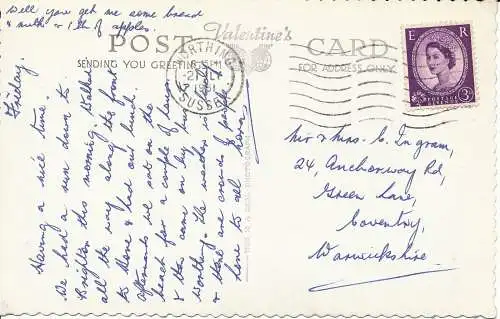 Will you get me some bread
& milk + 1 lb of apples.
POST CARD
Valentine's
SENDING YOU GREETINGS
FOR ADDRESS ONLY
WORTHING
SUSSEX
E R
POSTAGE REVENUE
3D
Friday.
Having a nice time.
We had a run down to
Brighton this morning. Walked
all the way along the front
to Hove & had our lunch.
Afterwards we sat on the
beach for a couple of hours
& then came on by bus to
Worthing. The weather is
& there are crowds of people
love to all
Mr & Mrs. C. Ingram,
24, Anchorway Rd,
Green Lane,
Coventry,
Warwickshire.